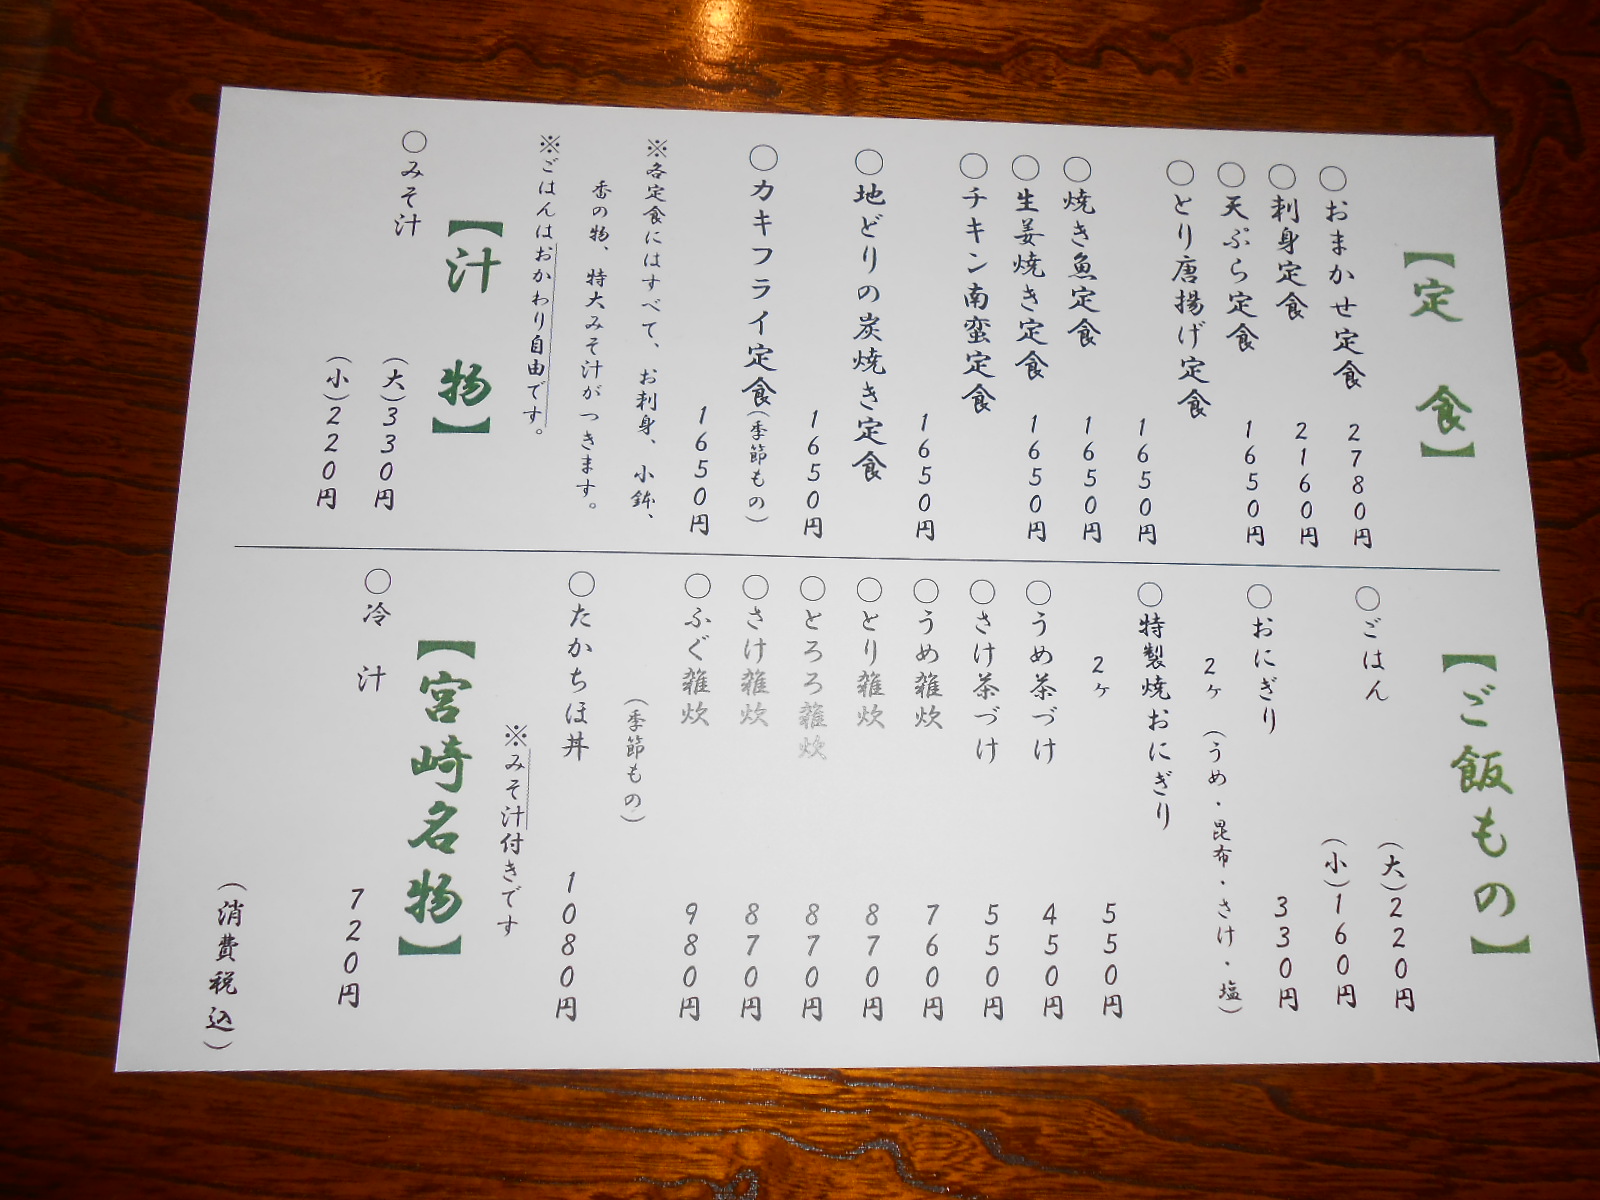 【定食】
○おまかせ定食 2780円
○刺身定食 2160円
○天ぷら定食 1650円
○とり唐揚げ定食
1650円
○焼き魚定食 1650円
○生姜焼き定食 1650円
○チキン南蛮定食
1650円
○地どりの炭焼き定食
1650円
○カキフライ定食(季節もの)
1650円
※各定食にはすべて、お刺身、小鉢、
香の物、特大みそ汁がつきます。
※ごはんはおかわり自由です。
【汁物】
○みそ汁 (大)330円
(小)220円
【ご飯もの】
○ごはん (大)220円
(小)160円
○おにぎり 330円
2ヶ (うめ・昆布・さけ・塩)
○特製焼おにぎり
2ヶ 550円
○うめ茶づけ 450円
○さけ茶づけ 550円
○うめ雑炊 760円
○とり雑炊 870円
○とろろ雑炊 870円
○さけ雑炊 870円
○ふぐ雑炊 980円
(季節もの)
○たかちほ丼 1080円
※みそ汁付きです
【宮崎名物】
○冷汁 720円
(消費税込)